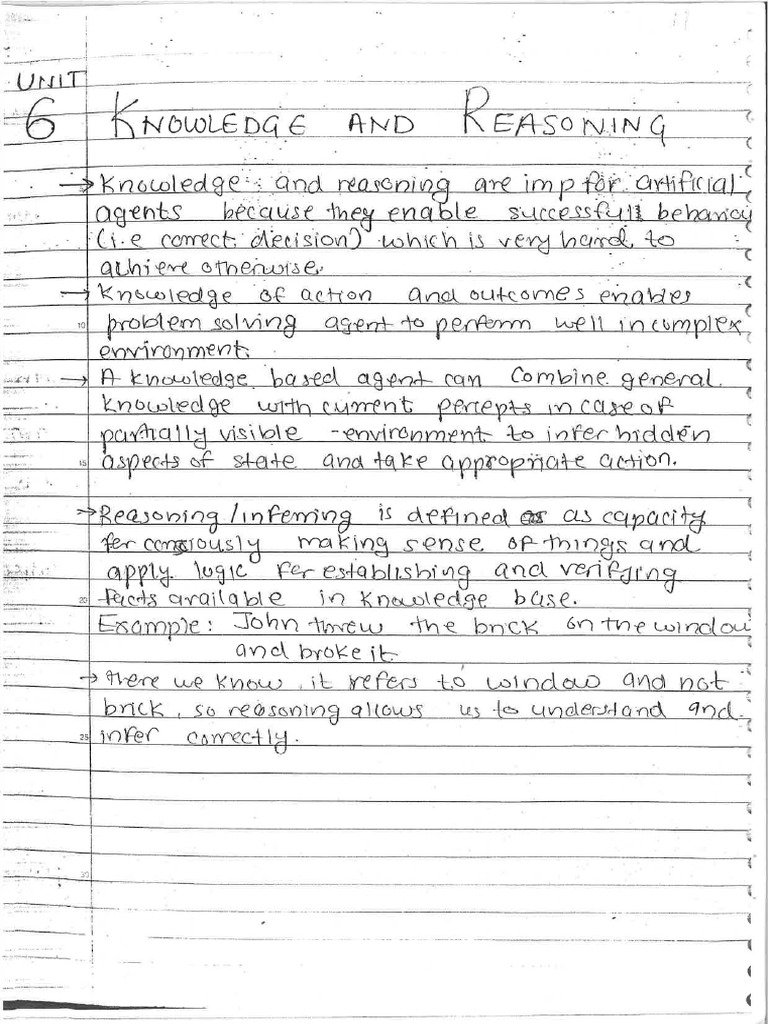 UNIT
6 KNOWLEDGE AND REASONING
→ Knowledge and reasoning are imp for artificial
agents because they enable successfull behavior
(i.e correct decision) which is very hard to
achieve otherwise.
→ Knowledge of action and outcomes enables
10 problem solving agent to perform well in complex
environment.
→ A knowledge based agent can combine general
knowledge with current percepts in case of
partially visible -environment to infer hidden
15 aspects of state and take appropriate action.
→ Reasoning/inferring is defined as as capacity
for consciously making sense of things and
apply logic for establishing and verifying
20 facts available in knowledge base.
Example: John threw the brick on the window
and broke it.
→ there we know, it refers to window and not
brick, so reasoning allows us to understand and
25 infer correctly.
30